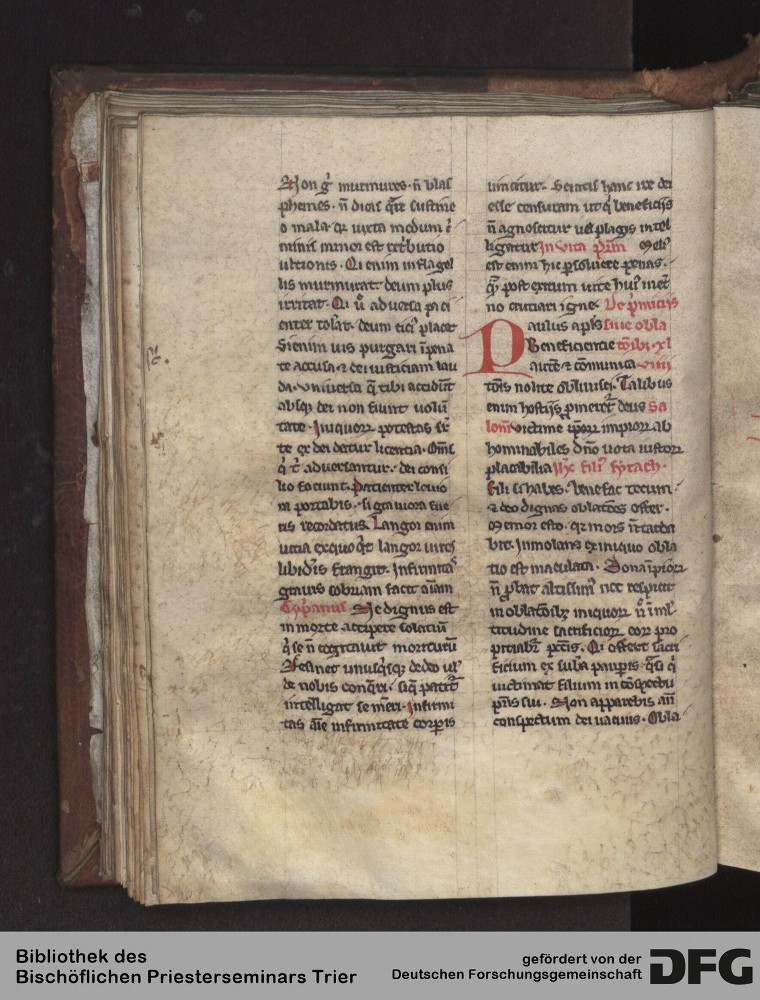 Non gͦ murmures · n̄ blas
phemes · n̄ dicas q̄re sustine
o mala · qꝛ iuxta modum c̄
minis minor est retͥbutio
ultionis · Qui enim in flagel
lis murmurat deum plus
irritat · Qi uͦ aduersa paci
enter tolͣat · deum citiꝰ placat
Si enim uis purgari in pena
te accusa · ⁊ dei iusticiam lau
da · Vniuersa q̄ tibi accidūt
absqꝫ dei non fiunt uolū
tate · Iniquorꝝ potestas sꝑ
te ex dei datur licentia · Om̄s
q̇ tͥ aduersantur · dei consi
lio faciunt · Pacienter leuio
ra portabis · si grauiora fue
ris recordatus Langor enim
uicia excoquit langor uires
libidīs frangit · Infirmitas
grauis sobriam facit aīam
Cypͥanus Ne dignus est
in morte accipere solaciū
q̇ se n̄ cogitauit moriturū
Desinet unusqͥsqꝫ de deo ul'
de nobis conqͥri · siqͣ patitͬ
intelligat se meri · Infirmi
tas aīe infirmitate corpis
uincitur · Sciatis hanc ire dei
esse censuram ut qͥ beneficijs
n̄ agnoscitur uel plagis intel
ligatur In vita patrū Meliꝰ
est enim hic ꝑsoluere penas ·
qͣ post exitum uite huiꝰ inet̄
no cruciari igne · De pͥmicijs
Paulus apl̄s siue obla
Beneficiencie tōibꝫ · xl
autē ⁊ cōmunica viiii
tōis nolite obliuisci · Talibus
enim hostijs ꝓmeretͬ deus Sa
lom̄ victime ipiorꝝ impiorꝝ ab
hominabiles dn̄o uota iustorꝝ
placabilia Ihc filiꝰ syrach ·
Fili si habes · benefac tecum ·
⁊ deo dignas oblatōes offer ·
Memor esto · qꝛ mors n̄ tarda
bit · Inmolans ex iniquo obla
tio est maculata · Dona īpiorꝝ
n̄ ꝓbat altissimꝰ nec respicit
in oblatōibꝫ iniquorꝝ n̄ ī ml̄
titudine sacrificiorꝝ eorꝝ pro
piciabitͬ pctīs · Qi offert sacri
ficium ex sub̄a pauꝑis · qͣsi qͥ
uictimat filium in cōspectu
pr̄is sui · Non apparebis an̄
conspectum dei uacuus · Obla
Bibliothek des
Bischöflichen Priesterseminars Trier
gefördert von der
Deutschen Forschungsgemeinschaft
DFG